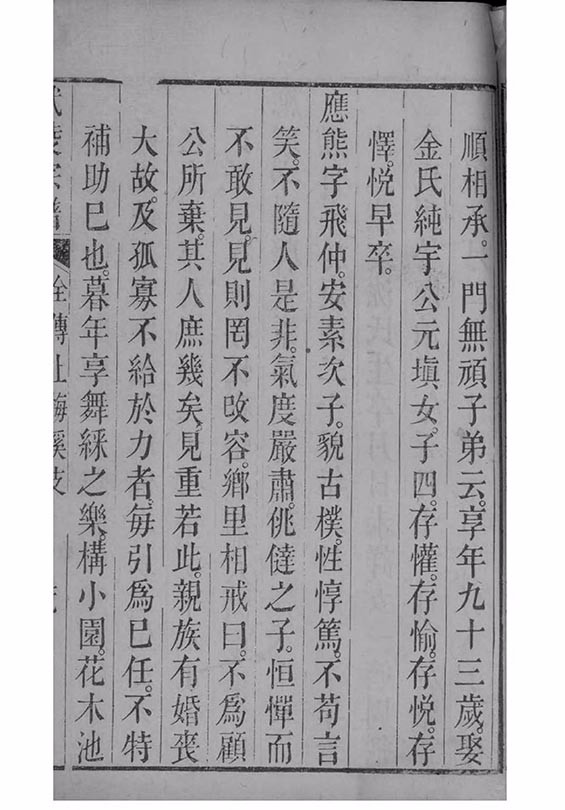 順相承。一門無頑子弟云。享年九十三歲。娶
金氏純宇公元塤女。子四。存懽。存愉。存悅。存
懌。悅早卒。
應熊字飛仲。安素次子。貌古樸。性惇篤。不苟言
笑。不隨人是非。氣度嚴肅。佻㒓之子。恒憚而
不敢見。見則罔不改容。鄉里相戒曰。不為顧
公所棄。其人庶幾矣。見重若此。親族有婚喪
大故。及孤寡不給於力者。每引為已任。不特
補助已也。暮年享舞綵之樂。構小園。花木池